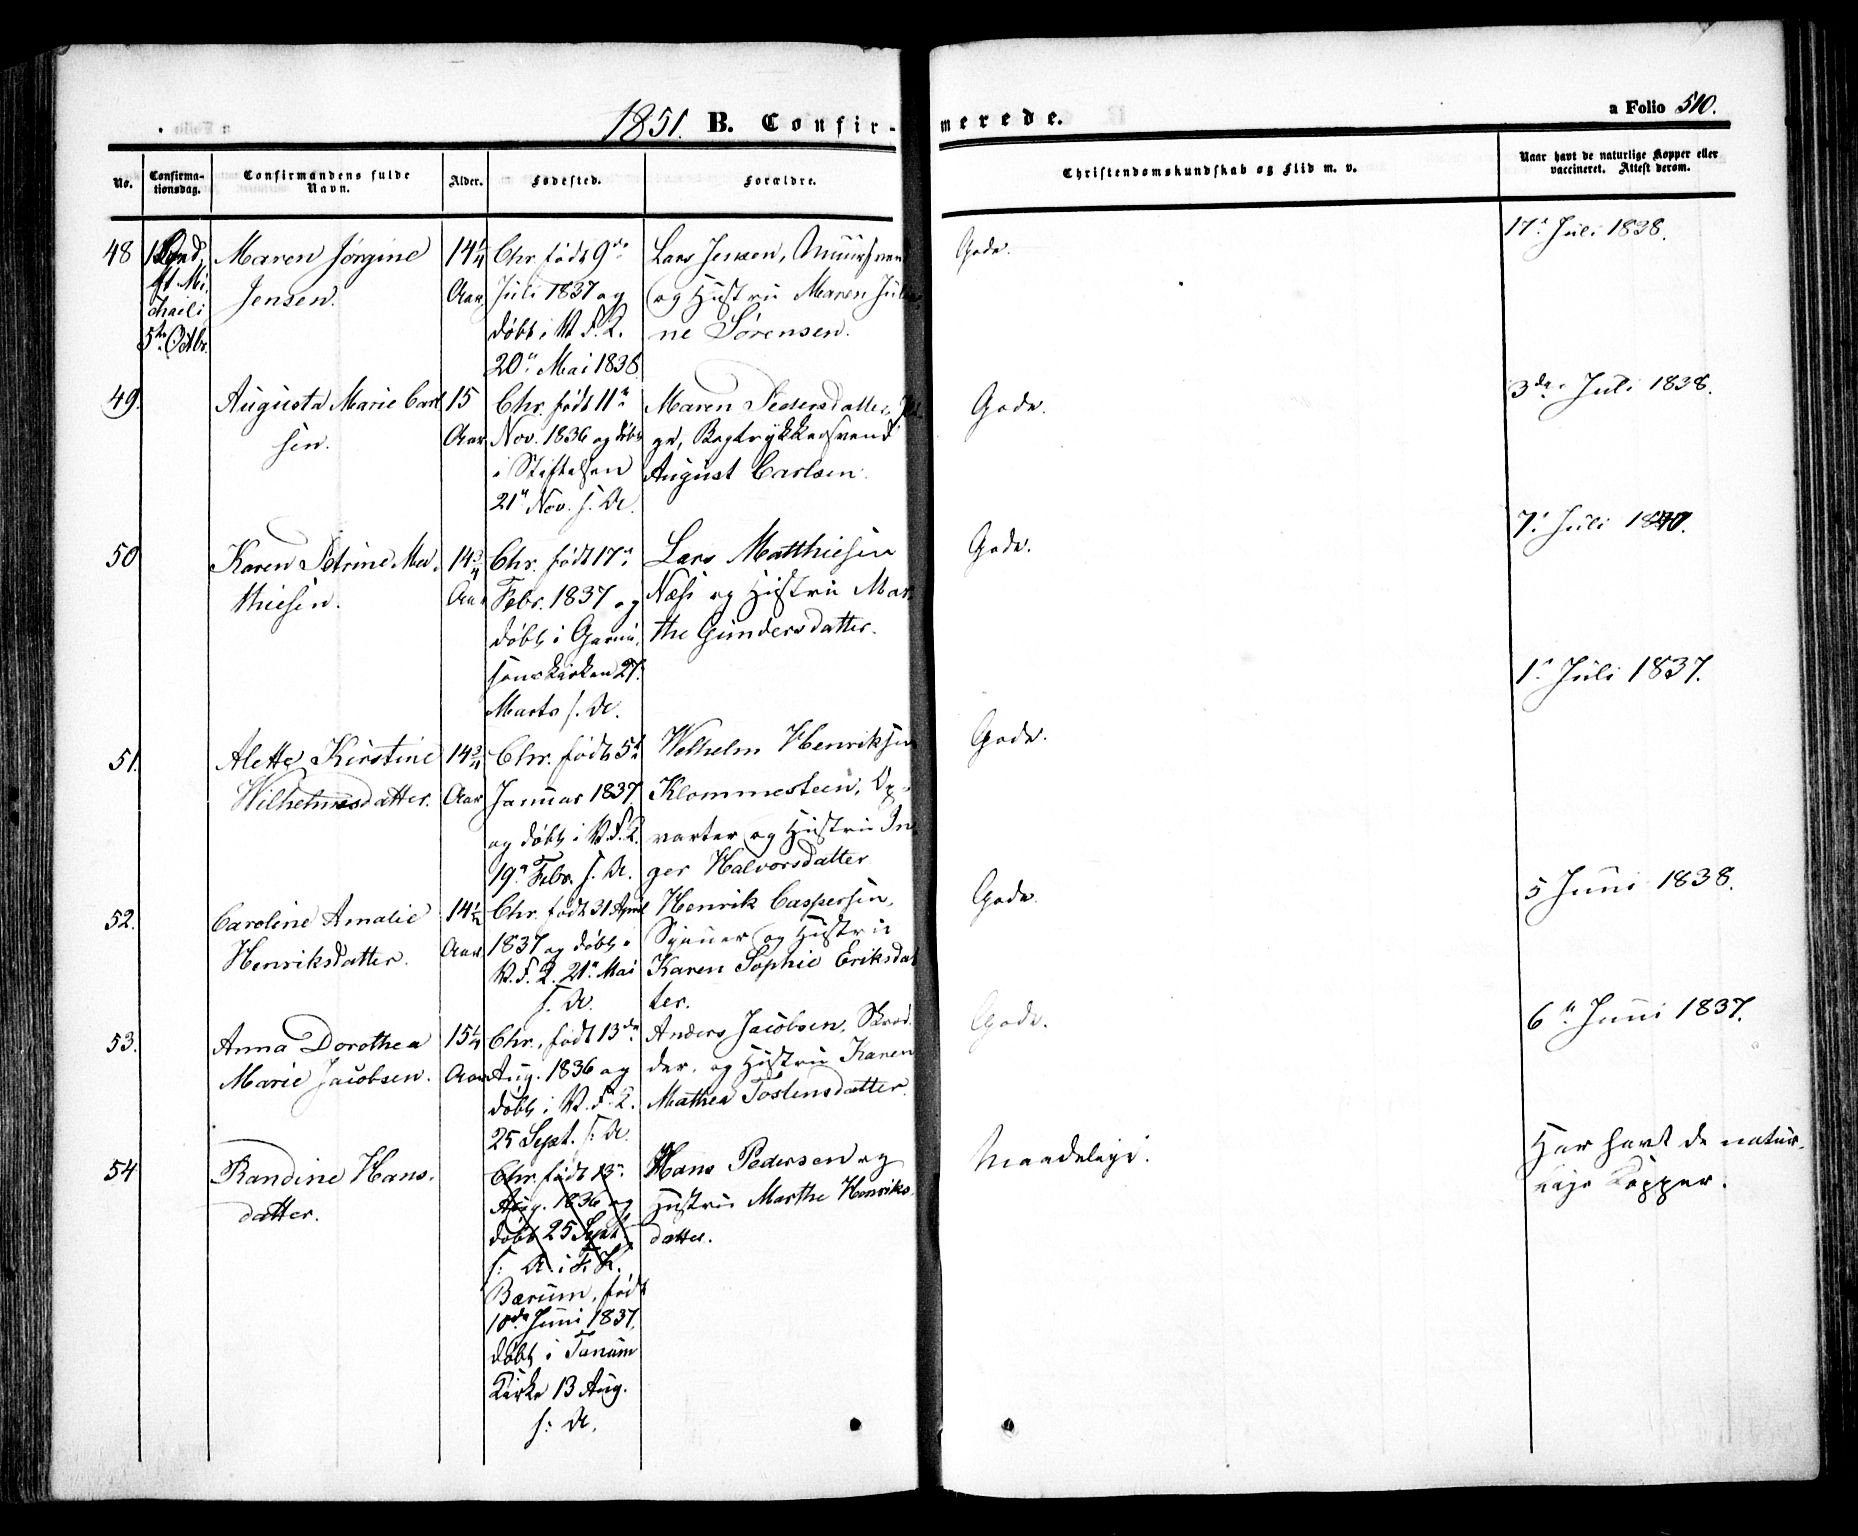 1851. B. Confir-
merede.
a Folio 510.
No.
Confirma-
tionsdag.
Confirmandens fulde
Navn.
Alder.
Fødested.
Forældre.
Christendomskundskab og Flid m. v.
Naar havt de naturlige Kopper eller
vaccineret. Attest derom.
48
Mi-
chaeli
5te Octbr.
Maren Jørgine
Jensen.
14 1/4
Aar
Chr. født 9de
Juli 1837 og
døbt i V. F. K.
20de Mai 1838
Lars Jensen, Muursvend
og Hustru Maren Juli-
ne Sørensen.
Gode.
17de Juli 1838.
49.
Augusta Marie Carl-
sen.
15
Aar
Chr. født 11te
Nov. 1836 og døbt
i Stiftelsen
21de Nov. s. A.
Maren Pedersdatter, Pi-
ge, Bogtrykkersvend
August Carlsen.
Gode.
3die Juli 1838.
50
Karen Petrine Ma-
thiesen.
14 3/4
Aar
Chr. født 17de
Febr. 1837 og
døbt i Garni-
sonskirken 27.
Marts s. A.
Lars Matthiesen
Næss og Hustru Mar-
the Gundersdatter.
Gode.
7. Juli 1840.
51.
Alette Kirstine
Wilhelmsdatter.
14 3/4
Aar
Chr. født 5te
Januar 1837
og døbt i V. F. K.
19de Febr. s. A.
Welhelm Henriksen
Klommesteen, Op-
varter og Hustru In-
ger Halvorsdatter
Gode.
1ste Juli 1837.
52.
Caroline Amalie
Henriksdatter.
14 1/2
Aar
Chr. født 31 April
1837 og døbt i
V. F. K. 21de Mai
s. A.
Henrik Caspersen,
Sjauer og Hustru
Karen Sophie Eriksdat-
ter.
Gode.
5 Juni 1838.
53.
Anna Dorothea
Marie Jacobsen.
15 1/4
Aar
Chr. født 13de
Aug. 1836 og
døbt i V. F. K.
25 Sept. s. A.
Anders Jacobsen, Skræd-
der, og Hustru Karen
Mathea Tostensdatter.
Gode.
6te Juni 1837.
54
Randine Hans-
datter.
Chr. født 13de
Aug. 1836 og
døbt 25 Sept.
s. A. i F. K.
Bærum, født
10de Juni 1837.
døbt i Tanum
Kirke 13 Aug.
s. A.
Hans Pedersen og
Hustru Marthe Henriks-
datter.
Maadelige.
Har havt de natur-
lige Kopper.